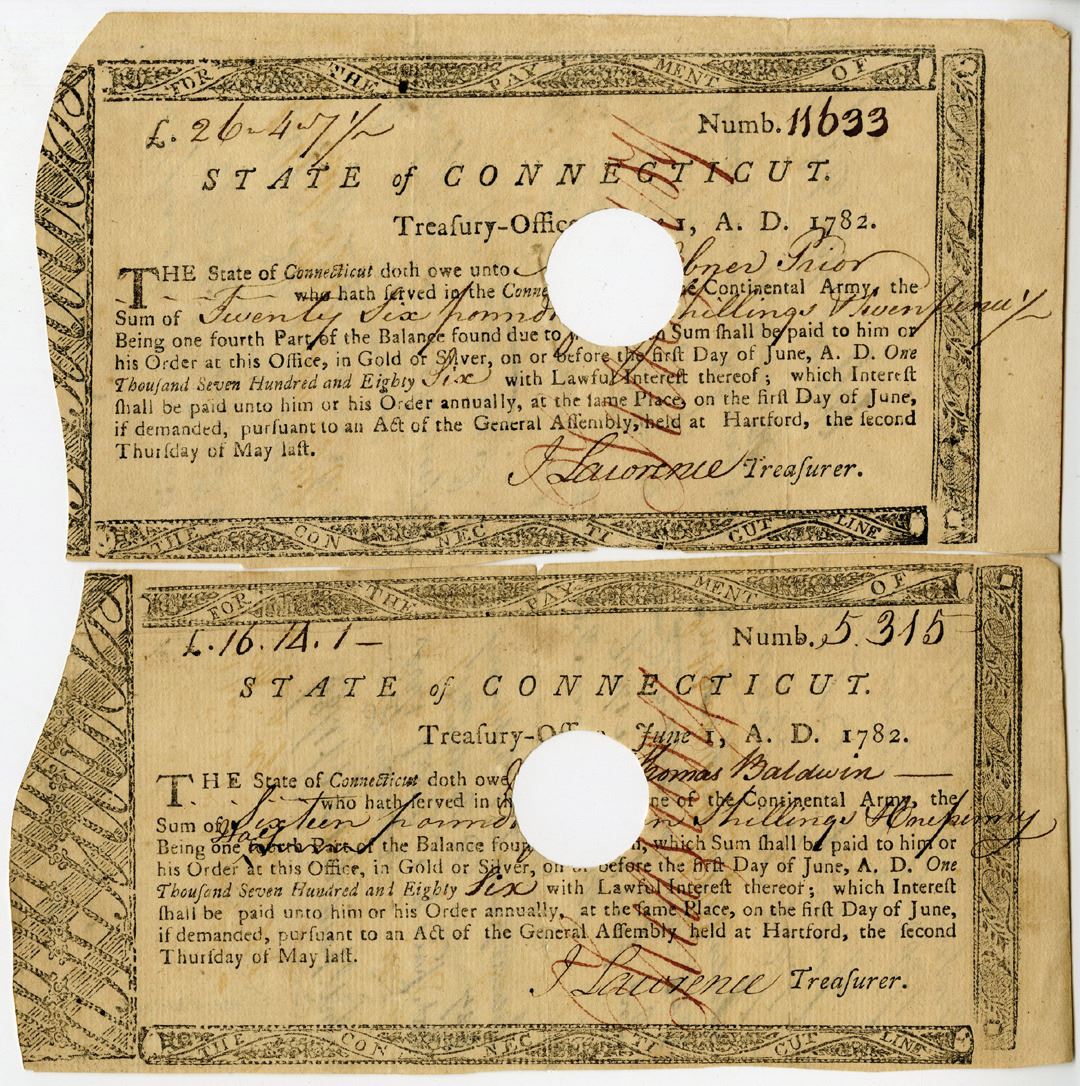 FOR THE PAYMENT OF
£. 26 " 4 " 7 ½
Numb. 11633
STATE of CONNECTICUT.
Treaſury-Office 1, A. D. 1782.
THE State of Connecticut doth owe unto Abner Prior
who hath ſerved in the Continental Army, the
Sum of Twenty Six pounds Shillings & Sevenpenny ½
Being one fourth Part of the Balance found due to Sum ſhall be paid to him or
his Order at this Office, in Gold or Silver, on or before the firſt Day of June, A. D. One
Thouſand Seven Hundred and Eighty Six with Lawful Intereſt thereof; which Intereſt
ſhall be paid unto him or his Order annually, at the ſame Place, on the firſt Day of June,
if demanded, purſuant to an Act of the General Aſſembly, held at Hartford, the ſecond
Thurſday of May laſt.
J Lawrence Treaſurer.
THE CONNECTICUT LINE
FOR THE PAYMENT OF
£. 16. 14. 1 –
Numb. 5.315
STATE of CONNECTICUT.
Treaſury-Office June 1, A. D. 1782.
THE State of Connecticut doth owe Thomas Baldwin
who hath ſerved in the Line of the Continental Army, the
Sum of Sixteen pounds Shillings & One penny
Being one fourth Part of the Balance found which Sum ſhall be paid to him or
his Order at this Office, in Gold or Silver, on or before the firſt Day of June, A. D. One
Thouſand Seven Hundred and Eighty Six with Lawful Intereſt thereof; which Intereſt
ſhall be paid unto him or his Order annually, at the ſame Place, on the firſt Day of June,
if demanded, purſuant to an Act of the General Aſſembly held at Hartford, the ſecond
Thurſday of May laſt.
J Lawrence Treaſurer.
THE CONNECTICUT LINE